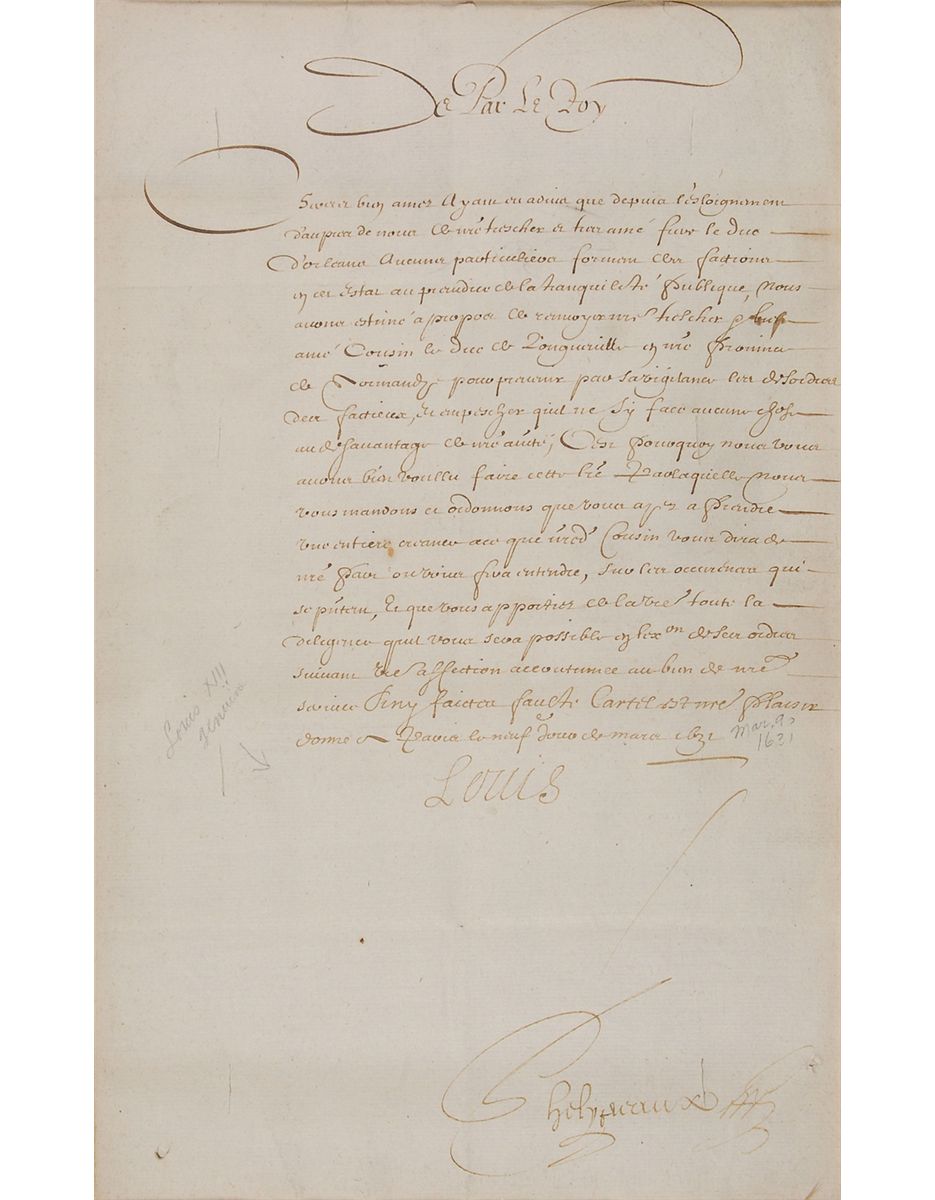 De Par Le Roy
Chers et bien amez Ayant eu advis que depuis l'esloignement
d'aupres de nous de nre trescher et tresamé frere le duc
d'orleans Aucuns particuliers forment des factions
en cet Estat au prejudice de la tranquilité publique, Nous
avons estimé a propos de renvoyer nre trescher et bien
amé Cousin le duc de Longueville en nre Province
de Normandye pour prevenir par sa vigilance les desordres
des factieux, et empescher quil ne s'y face aucune chose
au desavantage de nre auté; C'est pourquoy nous vous
avons bien voullu faire cette lre Par laquelle nous
vous mandons et ordonnons que vous ayez a prendre
une entiere creance a ce que nred Cousin vous dira de
nre part ou vous fera entendre, sur les occurences qui
se pntent, Et que vous apportiez de la vre toute la
deligence quil vous sera possible en lexon de ses ordres
suivant vre affection accoutumée au bien de nre
service Sy ny faictes faulte Car tel est nre plaisir
donné a Paris le neufe Jour de mars 1631
Mar. 9,
1631
Louis XIII
genuine
Louis
Phelypeaux